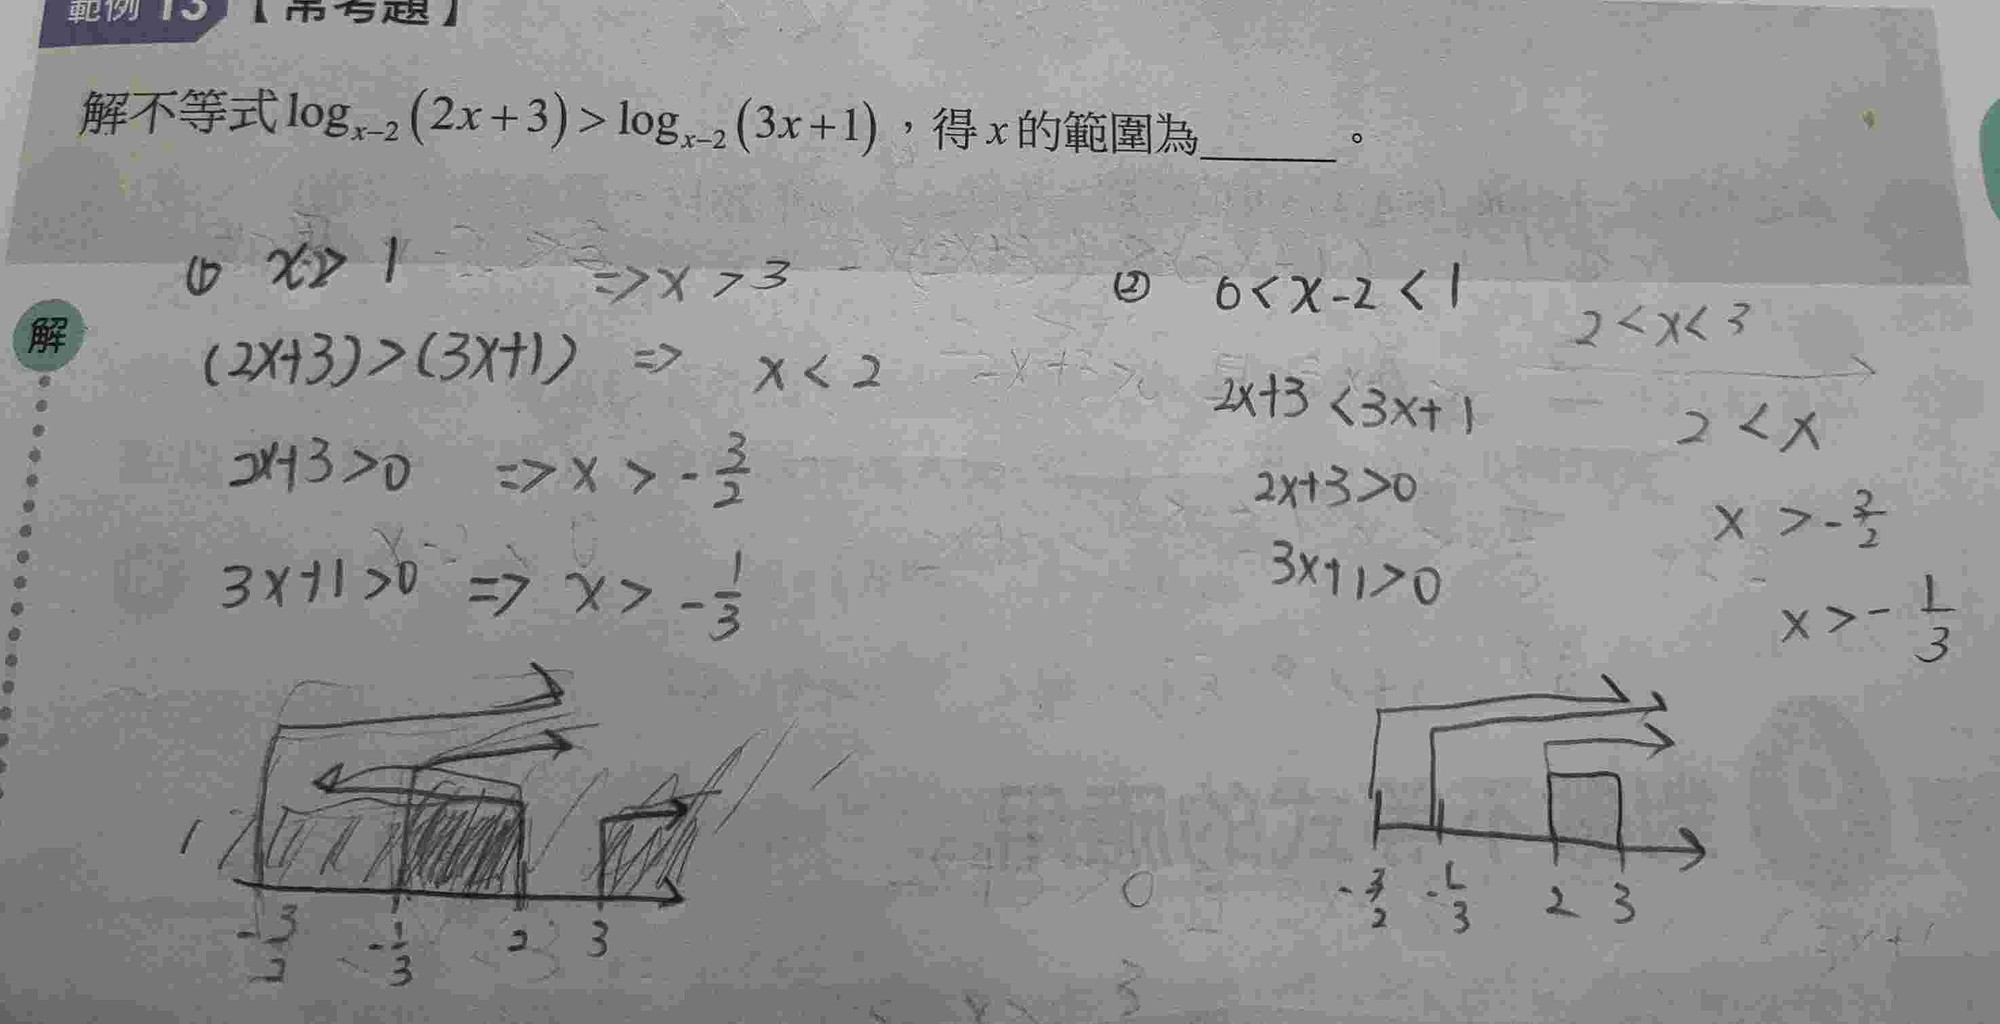 範例 13 【常考題】
解不等式 log_{x-2}(2x+3) > log_{x-2}(3x+1),得 x 的範圍為______。
解
① x-2 > 1 => x > 3
(2x+3) > (3x+1) => x < 2
2x+3 > 0 => x > -3/2
3x+1 > 0 => x > -1/3
-3/2 -1/3 2 3
② 0 < x-2 < 1 2 < x < 3
2x+3 < 3x+1 2 < x
2x+3 > 0 x > -3/2
3x+1 > 0 x > -1/3
-3/2 -1/3 2 3